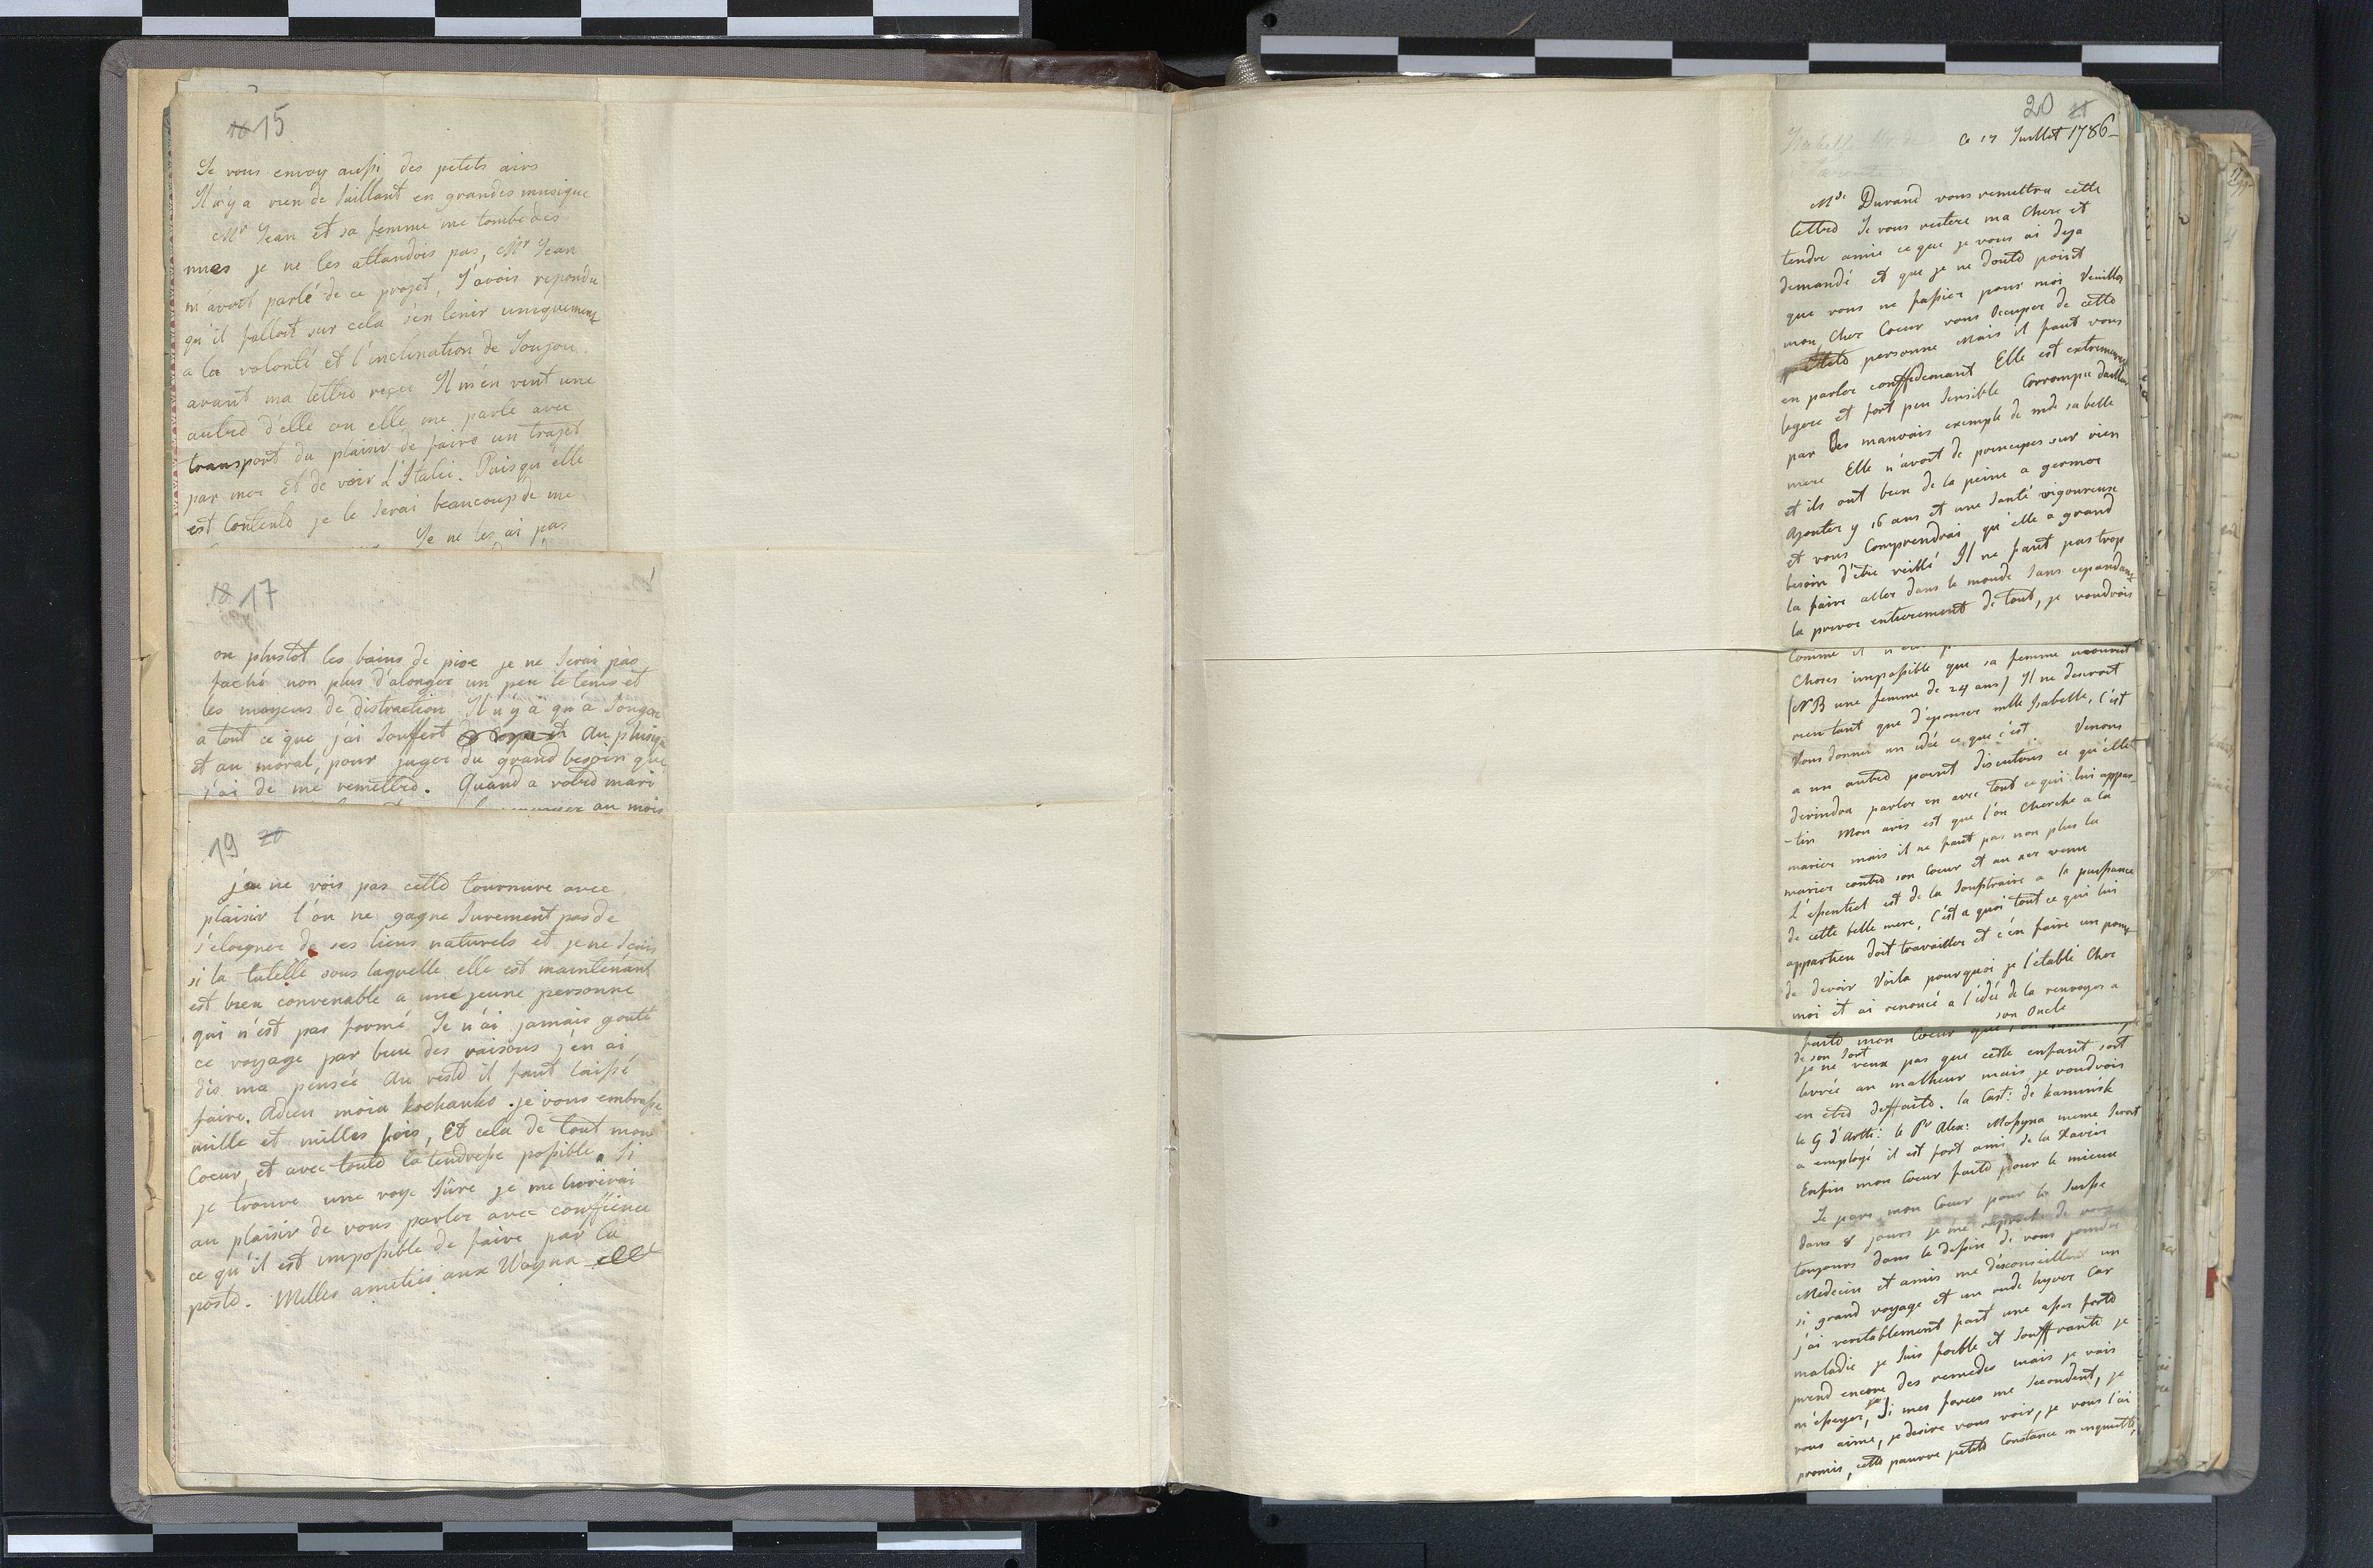 16 15
Je vous envoy aussi des petits airs
Il n'y a rien de saillant en grandes musique
Mr Jean et sa femme me tombe des
nues je ne les attandois pas, Mr Jean
m'avoit parlé de ce projet, J'avois repondu
qu'il falloit sur cela s'en tenir uniquement
a la volonté et l'inclination de Soujou.
avant ma lettre reçue Il m'en vint une
autre d'elle ou elle me parle avec
transport du plaisir de faire un trajet
par mer et de voir l'Italie. Puisqu'elle
est Contente je le serai beaucoup de me
Je ne les ai pas
18 17
ou plustot les bains de pise je ne serai pas
faché non plus d'alonger un peu le tems et
les moyens de distraction Il n'y a qu'a songer
a tout ce que j'ai souffert au phisique
et au moral, pour juger du grand besoin que
j'ai de me remettre. Quand a votre mari
au mois
19 20
je ne vois pas cette tournure avec
plaisir l'on ne gagne surement pas de
s'eloigner de ses liens naturels et je ne scais
si la tutelle sous laquelle elle est maintenant
est bien convenable a une jeune personne
qui n'est pas formé Je n'ai jamais gouté
ce voyage par bien des raisons j'en ai
dis ma pensée Au reste il faut laissé
faire. Adieu moia kochanko. je vous embrasse
mille et milles fois, Et cela de tout mon
Coeur, et avec toute la tendresse possible. Si
je trouve une voye sûre je me livrerai
au plaisir de vous parler avec conffience
ce qu'il est impossible de faire par la
poste. Milles amitiés aux Woyna
20 21
Ce 17 Juillet 1786
Mde Durand vous remettra cette
lettre Je vous reitere ma Chere et
tendre amie ce que je vous ai deja
demandé et que je ne doute point
que vous ne fassiez pour moi Veuillez
mon Cher Coeur vous Occuper de cette
petite personne Mais il faut vous
en parler conffidemant Elle est extremement
legere et fort peu sensible Corrompue dailleurs
par les mauvais exemple de mde sa belle
mere Elle n'avoit de principes sur rien
et ils ont bien de la peine a germer
Ajouter y 16 ans et une santé vigoureuse
et vous Comprendrai qu'elle a grand
besoin d'être veillé Il ne faut pas trop
la faire aller dans le monde sans cependant
la priver entierement de tout, je voudrois
Comme il
Choses impossible que sa femme mourut
(NB une femme de 24 ans) Il ne desiroit
rien tant que d'épouser mlle Isabelle, C'est
Vous donner un idée ce que c'est. Venons
a un autre point discutons ce qu'elle
devindra parler en avec tout ce qui lui appar-
-tin Mon avis est que l'on Cherche a la
marier mais il ne faut pas non plus la
marier contre son Coeur et au 1er venu
L'essentiel est de la soustraire a la puissance
de cette belle mere, C'est a quoi tout ce qui lui
appartien doit travailler et s'en faire un point
de devoir Voila pourquoi je l'etabli Chez
moi et ai renoncé a l'idée de la renvoyer a
son Oncle
faite mon Coeur que
de son sort
je ne veux pas que cette enfant soit
livrée au malheur mais je voudrois
en etre deffaite. la Cast: de Kaminsk
le G d'Artti: le Pr Alex: Mossyna meme seroit
a employé il est fort ami de la Xavier
Enfin mon Coeur faite pour le mieux
Je pars mon Coeur pour la Suisse
dans 8 jours je me raproche de vous
toujours dans le dessin de vous joindre
Medecin et amis me déconseillent un
si grand voyage et un rude hyver Car
j'ai veritablement fait une assez forte
maladie je suis foible et souffrante je
prend encore des remedes mais je vais
m'essayer, si mes forces me secondent, je
vous aime, je desire vous voir, je vous l'ai
promis, cette pauvre petite Constance m'inquiette,